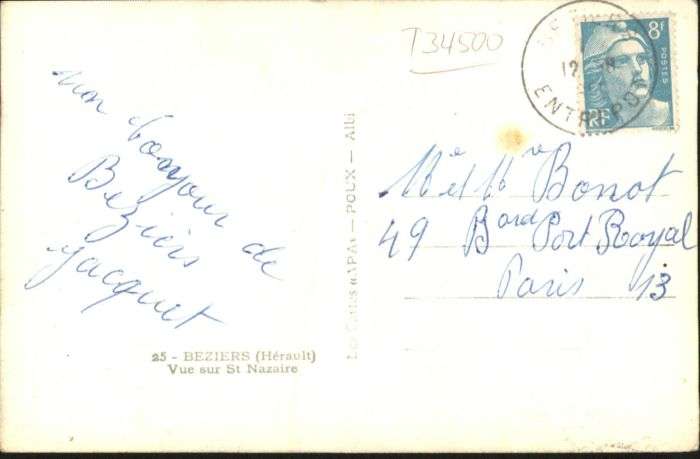 T34500
8F
POSTES
RF
12
ENTREPOT
mon bonjour de
Beziers
Jacquet
Mr et Me Bonot
49 Bard Port Royal
Paris 13
Les Cartes «APA» — POUX — Albi
25 - BEZIERS (Hérault)
Vue sur St Nazaire